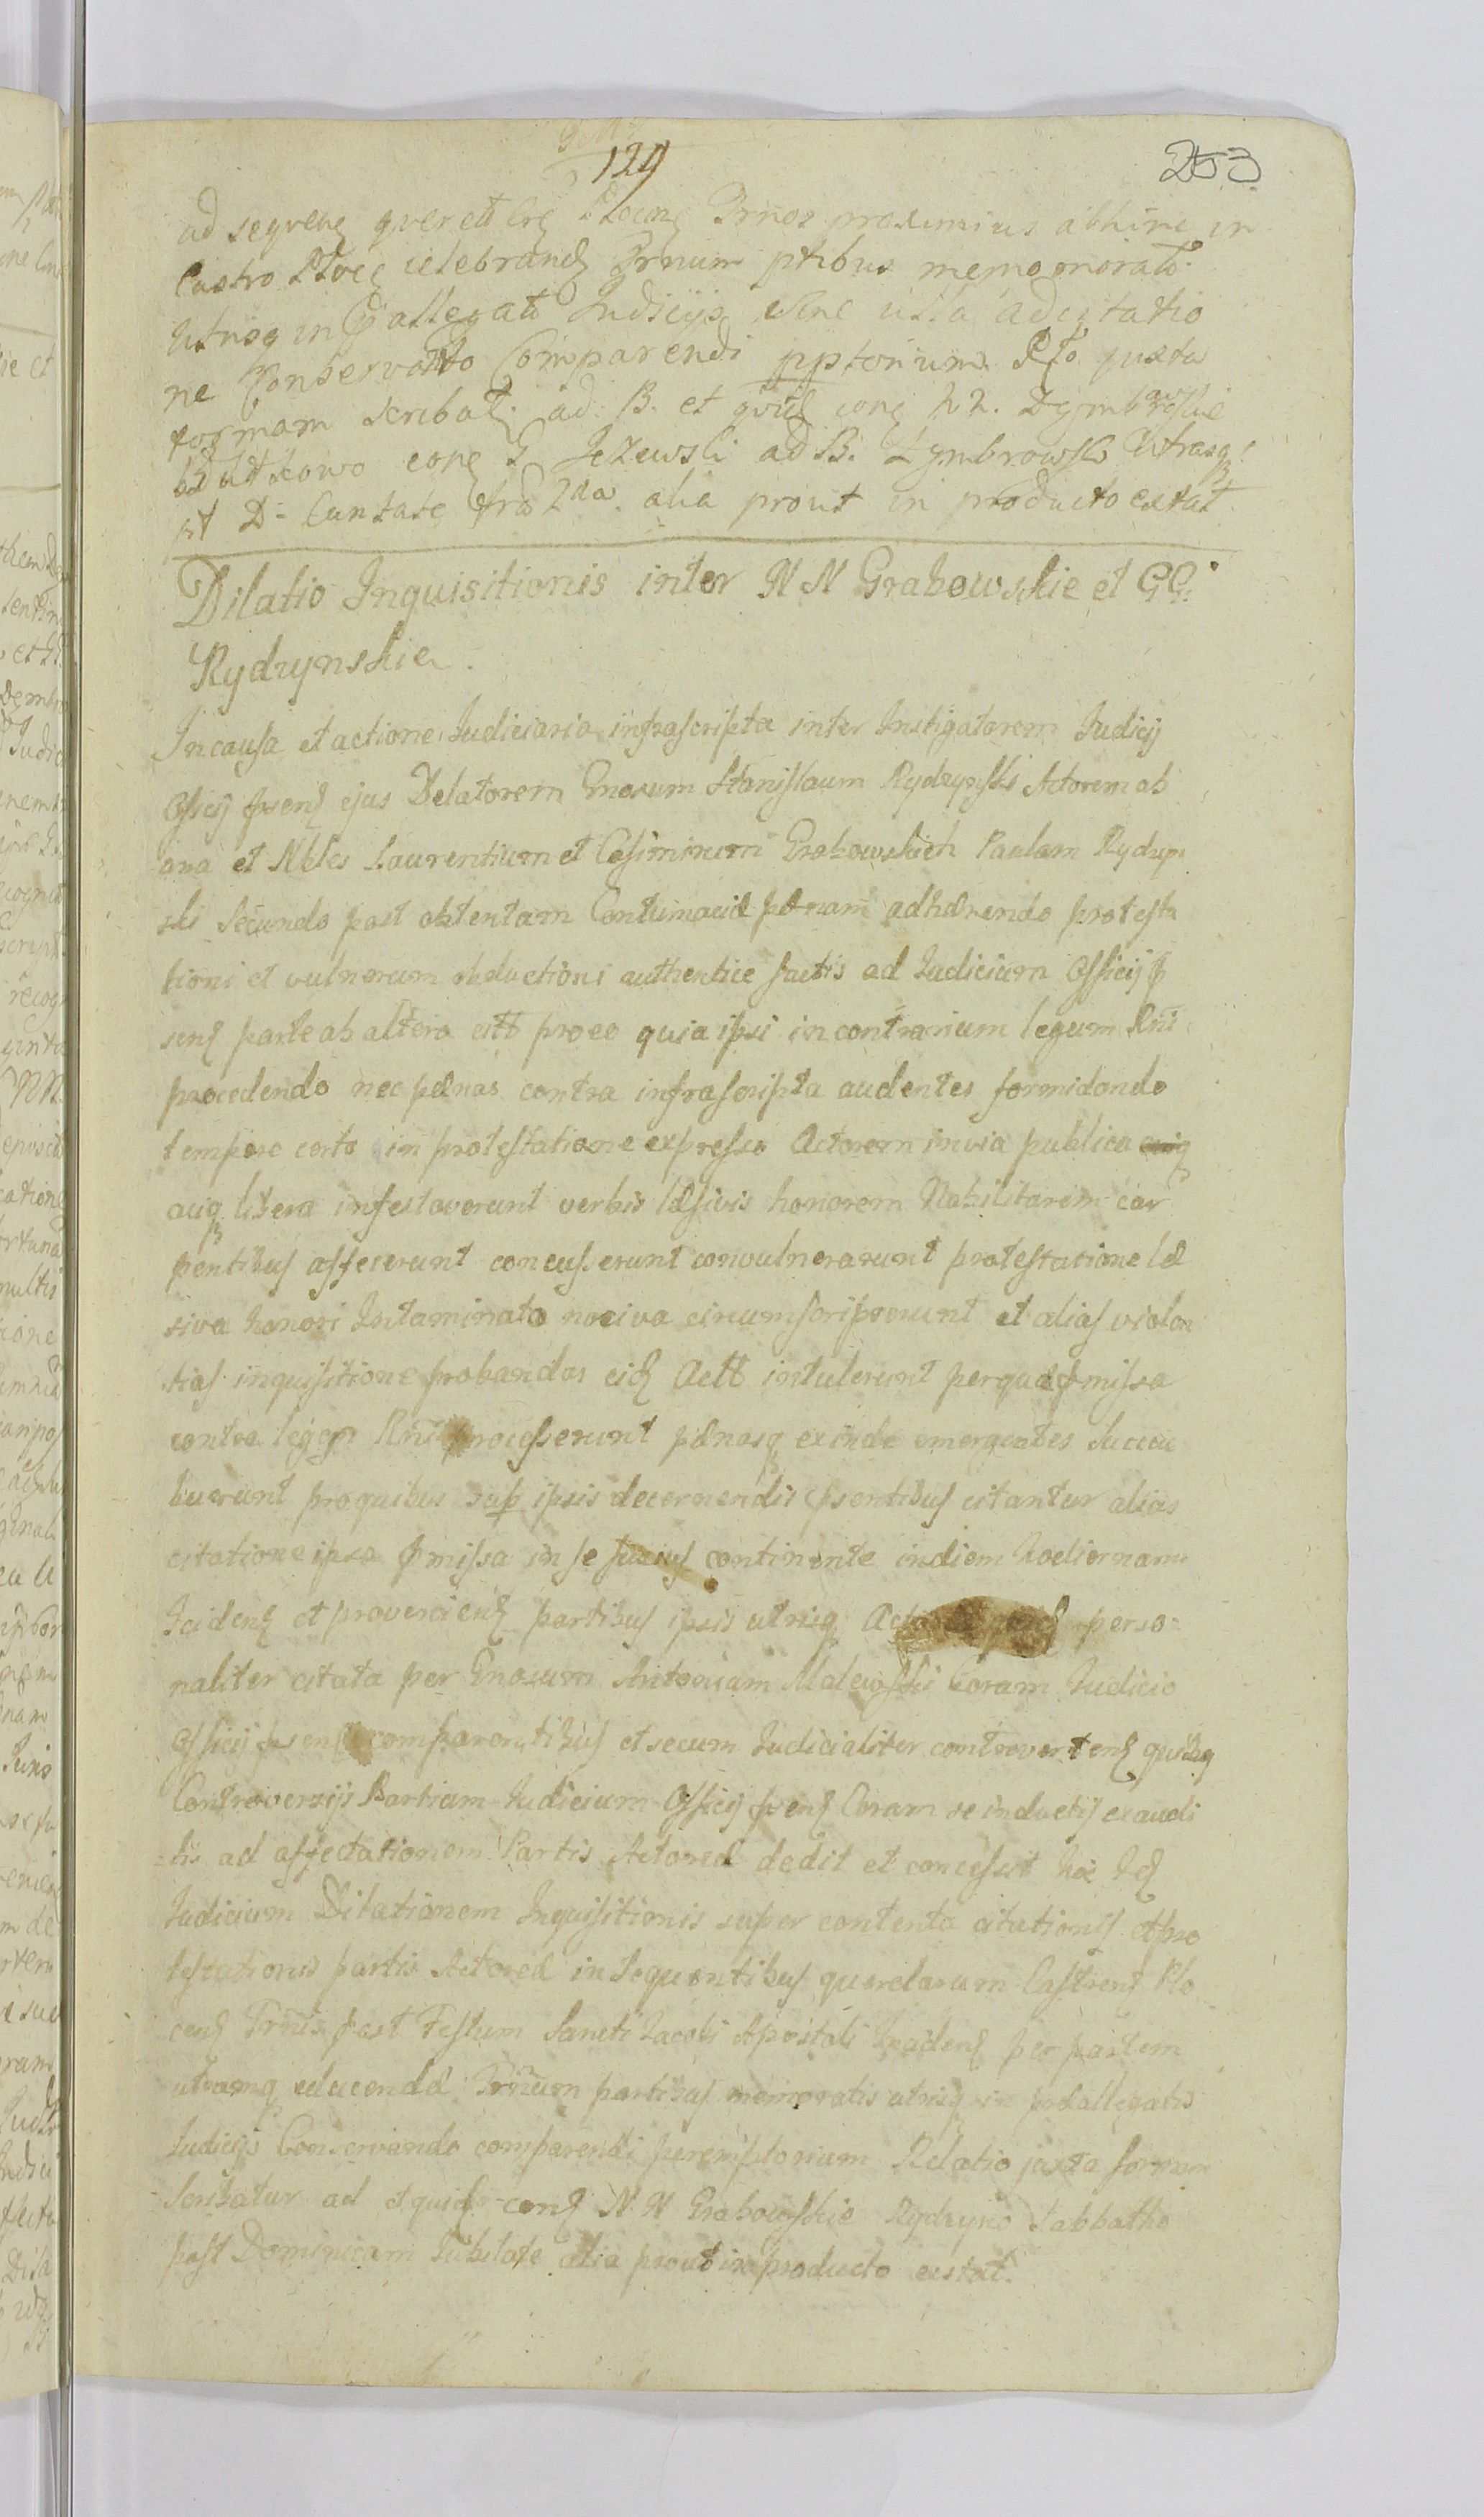 129
253
ad seqvenʒ qverett Crẽ Plocenʒ Trños proxımıus abhinc in
Castro Plocʒ celebrandʒ Trnum ptibus memomorato
utrusq in Pallegatõ Judicijs sine ulla adcitatio
ne Conservando Comparendi pptorium. Rto juxta
formam scribat. ad B. et qvidʒ conʒ NN. Dzymbrowskie
Butkowo conʒ G Jezewski ad B. Dzymbrowski Utrasq
pt D: Cantate fria 2da alia prout in producto extat
Dilatio Inquisitionis inter N N Grabowskie et GG.
Rydzynskie.
In causa et actione Judiciaria infrascripta inter Instigatorem Judicij
Officij psenʒ ejus Delatorem Gnosum Stanislaum Rydzynski Actorem ab
una et Nbles Laurentium et Casimirum Grabowskich Paulum Rydzyn
ski Secundo post obtentam Contumaciæ pænam adhærendo protesta
tioni et vulnerum obductioni authentice factis ad Judicium Officij p
senʒ parte ab altera citt pro eo quia ipsi in contrarium legum Rñi
procedendo nec pænas contra infrascripta audentes formidando
tempore certo in protestatione expresso Actorem in via publica
auq libera infestaverunt verbis læsivis honorem Nobilitarem car
pentibus affecerunt concusserunt convulnerarunt protestatione læ
siva honori Intaminato nociva circumscripserunt et alias violen
tias inquisitione probandas eidʒ Actt intulerunt per quæ pmissa
contra legem Rñi processerunt pænasq exinde emergentes Succu
buerunt pro quibus sup ipsis decernendis psentibus citantur alias
citatione ipsa pmissa in se fusius continente in diem hodiernam
Incidenʒ et provenienʒ partibus ipsis utrisq perso
naliter citata per Gnosum Antonium Malewski Coram Judicio
Officij psenʒ comparentibus et secum Judicialiter controvertenʒ quibusq
Controversijs Partium Judicium Officij psenʒ Coram se inductis exaudi
tis ad affectationem Partis Actoreæ dedit et concessit hoc Idʒ
Judicium Dilationem Inquisitionis super contenta citationis et pro
testationis partis Actoreæ in Sequentibus querelarum Castrenʒ Plo
cenʒ Trñis post Festum Sancti Jacobi Apostoli Incidenʒ per partem
utramq educendæ Trñum partibus memoratis utrisq in præallegatis
Judicijs Conservando comparendi peremptorium Relatio juxta formam
Scribatur ad et quidʒ conʒ N N Grabowskie Rydzyno Sabbatho
post Dominicam Jubilate alia prout in producto extat.